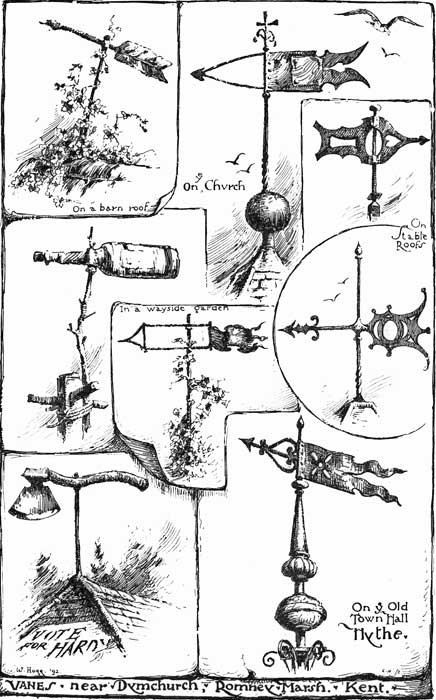 On a barn roof
On yͤ Chvrch
On
Stable
Roofs
In a wayside garden
VOTE
FOR HARDY
On yͤ Old
Town Hall
Hythe.
W. Hogg. '92
VANES · near · Dymchurch, · Romney · Marsh. · Kent.